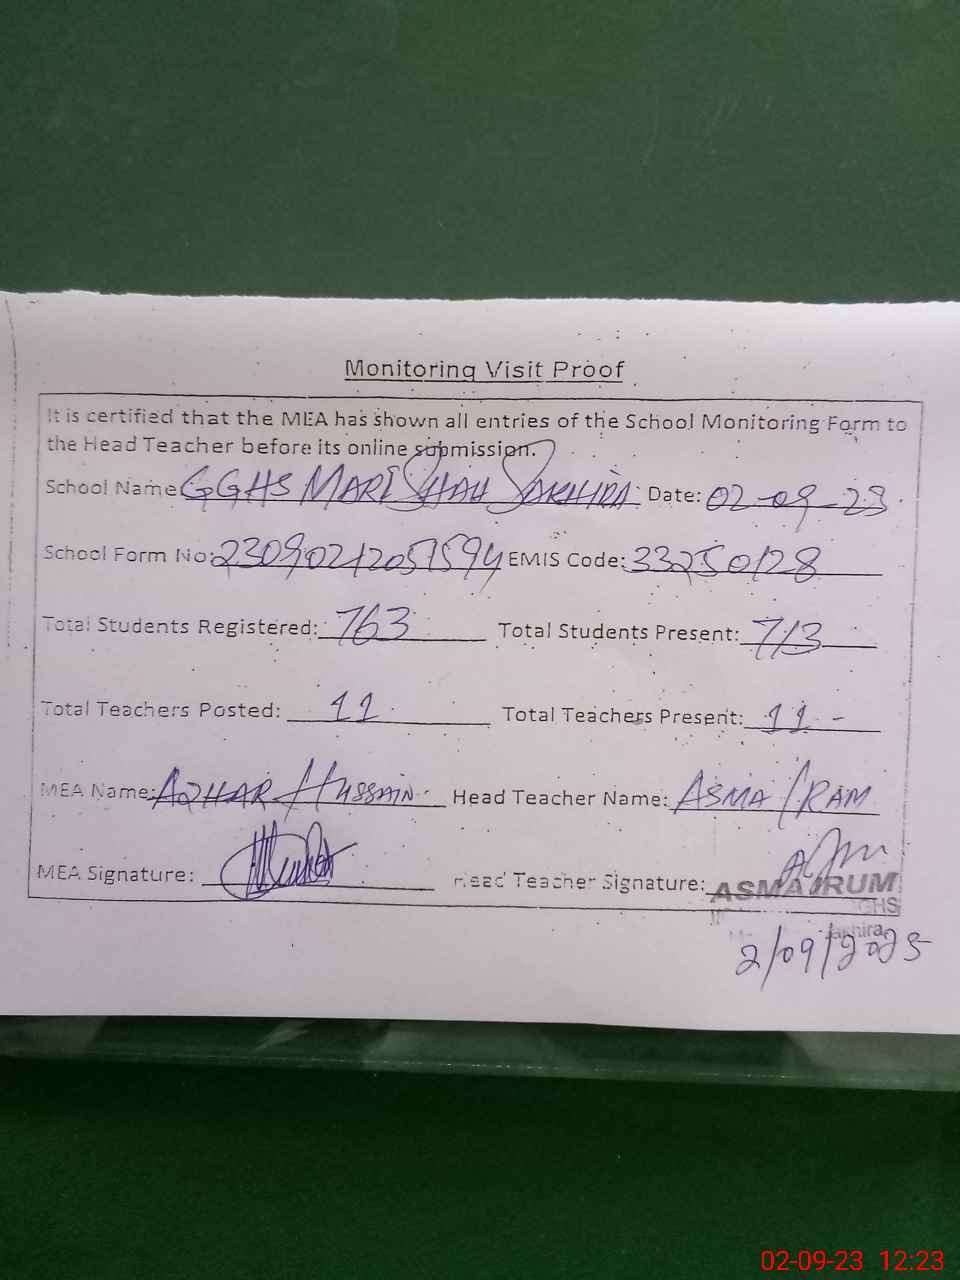 Monitoring Visit Proof
It is certified that the MEA has shown all entries of the School Monitoring Form to
the Head Teacher before its online submission.
School Name GGHS MARI SHAH SAKHIRA Date: 02-09-23
School Form No: 23090212051594 EMIS Code: 33250128
Total Students Registered: 763 Total Students Present: 713
Total Teachers Posted: 11 Total Teachers Present: 11
MEA Name: AZHAR HUSSAIN Head Teacher Name: ASMA IRAM
MEA Signature: Head Teacher Signature:
ASMA IRUM
GHS
2/09/2023
02-09-23 12:23